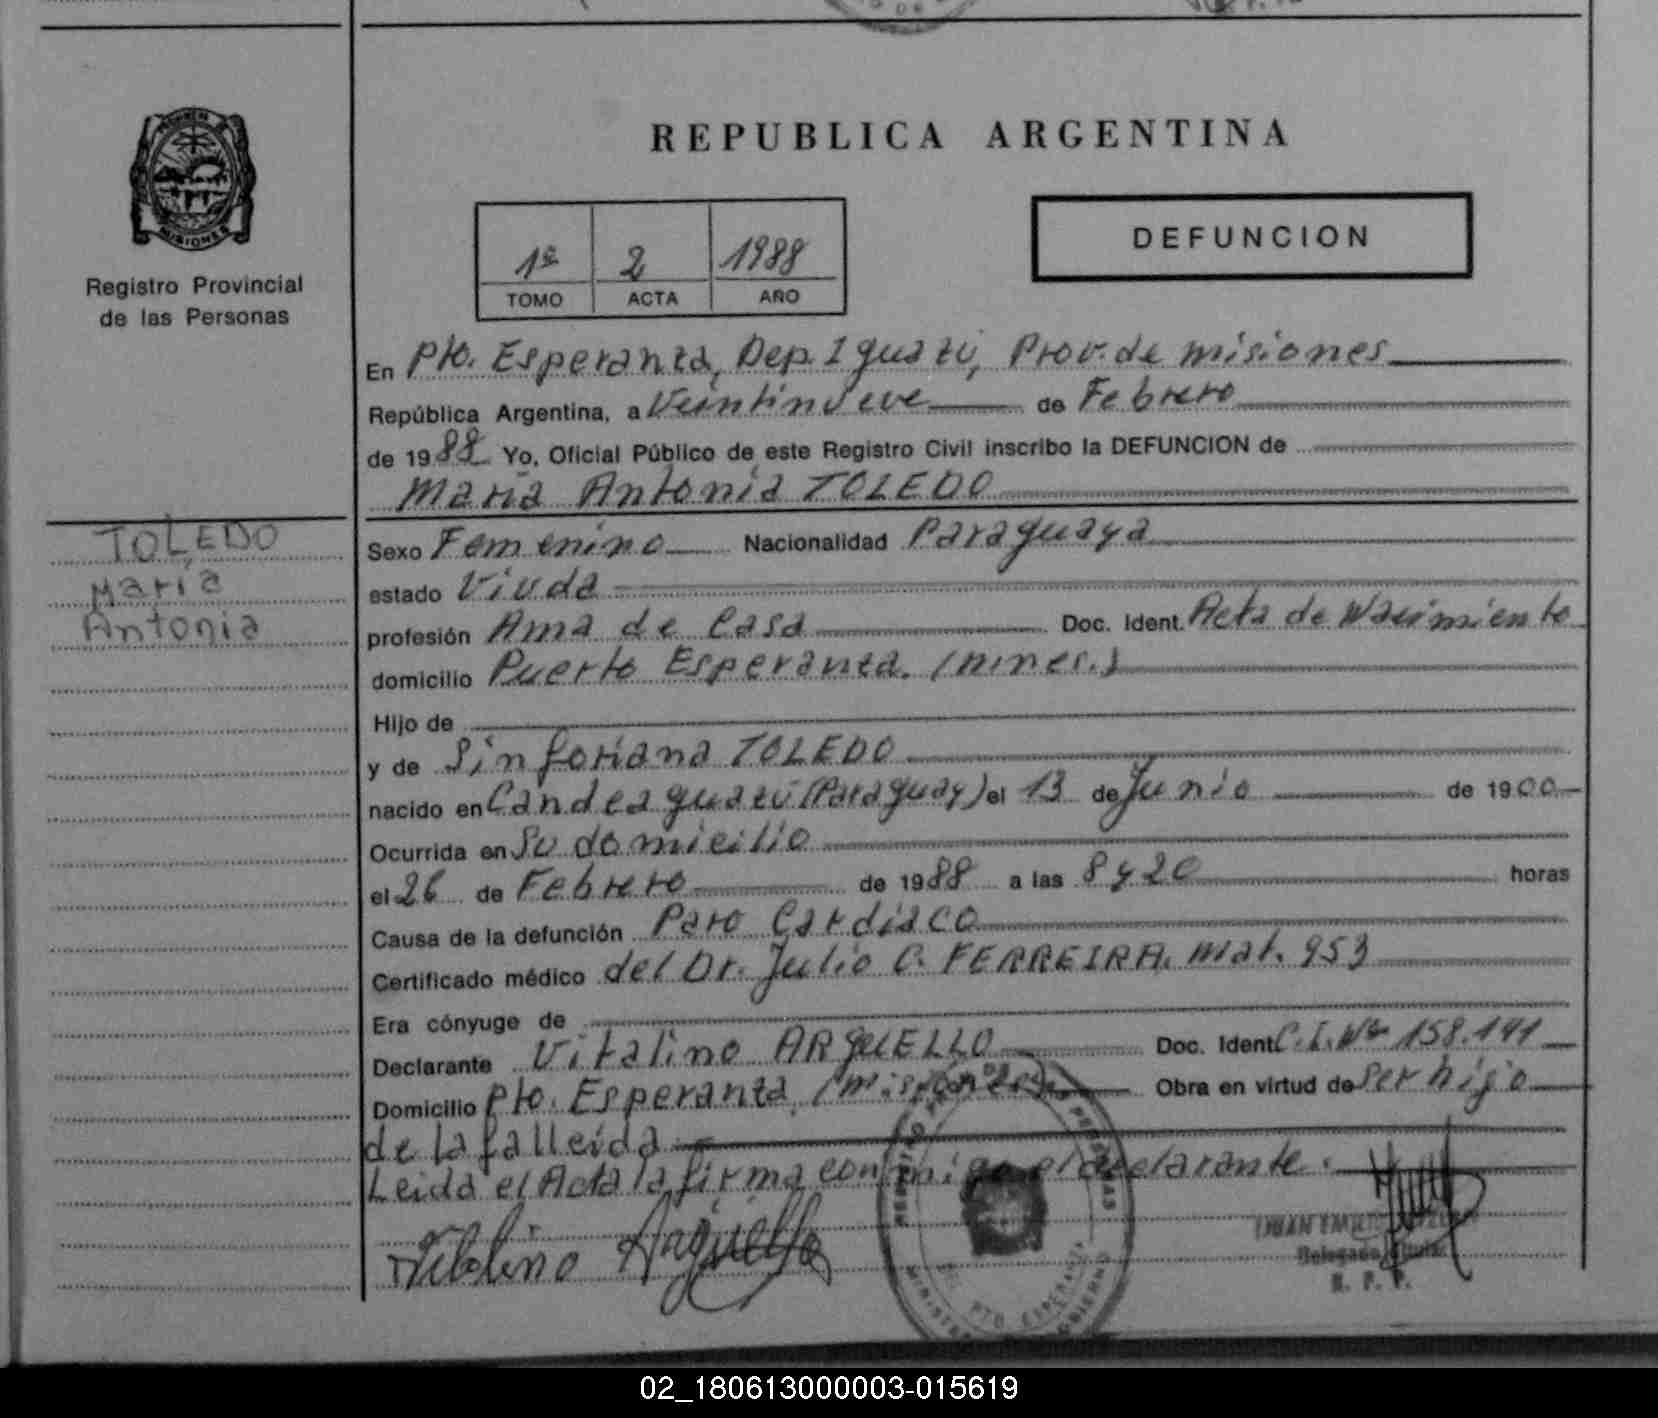 PROVINCIA DE
MISIONES
Registro Provincial
de las Personas
REPUBLICA ARGENTINA
1º 2 1988
TOMO ACTA AÑO
DEFUNCION
En Pto. Esperanza, Dep. Iguazú, Prov. de misiones
República Argentina, a Veintinueve de Febrero
de 1988 Yo, Oficial Público de este Registro Civil inscribo la DEFUNCION de
Maria Antonia TOLEDO
TOLEDO
Maria
Antonia
Sexo Femenino Nacionalidad Paraguaya
estado Viuda
profesión Ama de Casa Doc. Ident. Acta de Nacimiento
domicilio Puerto Esperanza. (mnes.)
Hijo de
y de Sinforiana TOLEDO
nacido en Candea guazú (Paraguay) el 13 de Junio de 1900
Ocurrida en Su domicilio
el 26 de Febrero de 1988 a las 8 y 20 horas
Causa de la defunción Paro Cardiaco
Certificado médico del Dr. Julio C. FERREIRA. mat. 953
Era cónyuge de
Declarante Vitalino ARguELLO Doc. Ident. C.I. Nº 158.141
Domicilio Pto. Esperanza, (misiones) Obra en virtud de ser hijo
de la falleida
Leida el Acta la firma conmigo el declarante.
Vitalino Arguello
PERSONAS
PTO ESPERANZA
Delegado Titular
R. P. P.
02_180613000003-015619